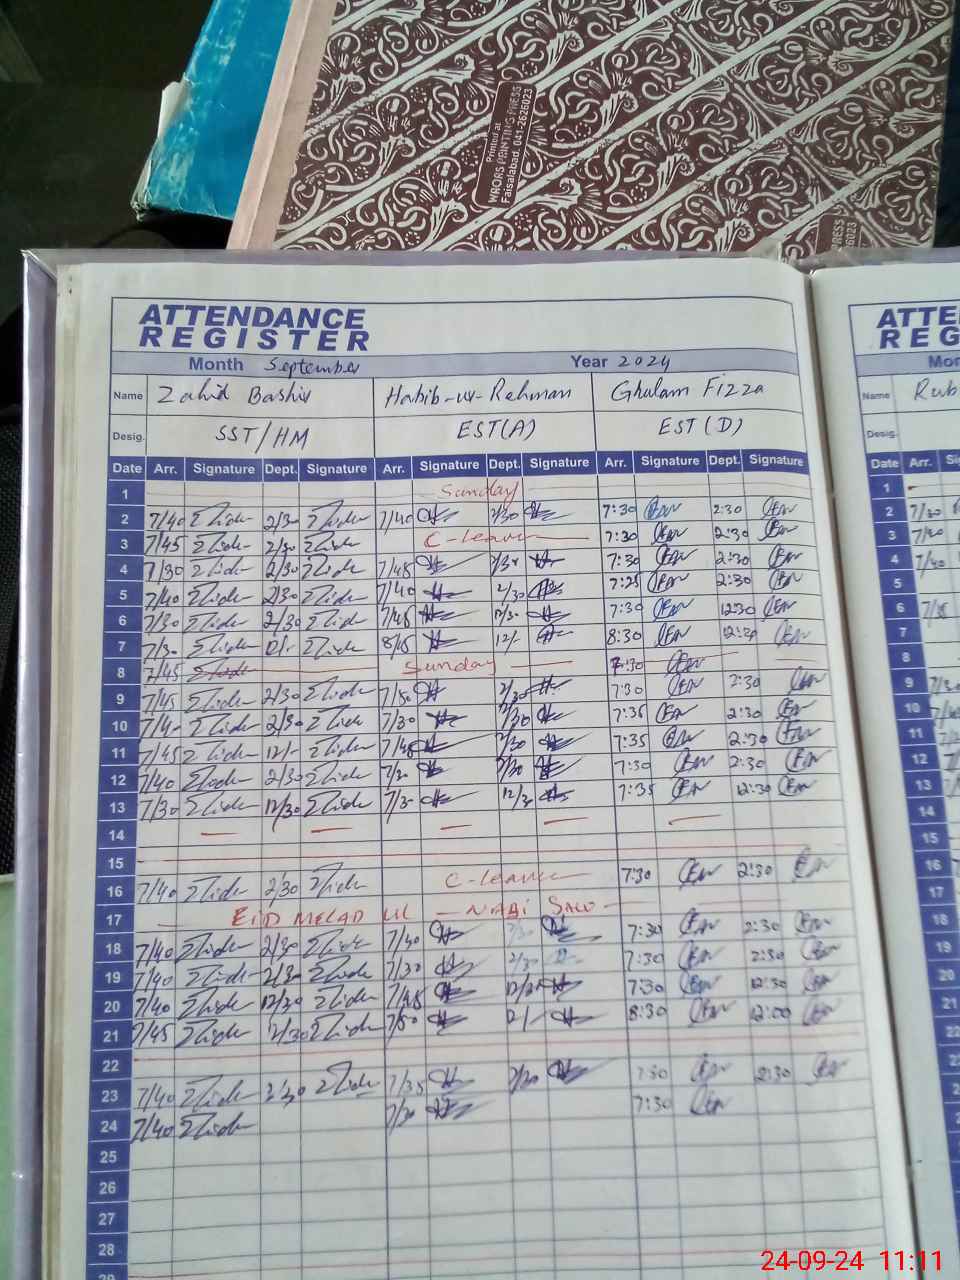 Printed at
WRORS PRINTING PRESS
Faisalabad: 041-2626023
RESS
6023
ATTENDANCE
REGISTER
Month September Year 2024
Name Zahid Bashir Habib-ur-Rehman Ghulam Fizza
Desig. SST/HM EST(A) EST(D)
Date Arr. Signature Dept. Signature Arr. Signature Dept. Signature Arr. Signature Dept. Signature
1 Sunday
2 7/40 2/30 7/40 2/30 7:30 2:30
3 7/45 2/30 C-leave 7:30 2:30
4 7/30 2/30 7/45 2/30 7:30 2:30
5 7/40 2/30 7/40 2/30 7:25 2:30
6 7/30 2/30 7/45 12/30 7:30 12:30
7 7/30 12/- 8/15 12/- 8:30 12:30
8 7/45 Sunday 7:30
9 7/45 2/30 7/50 2/30 7:30 2:30
10 2/30 7/30 2/30 7:35 2:30
11 7/45 12/- 7/45 2/30 7:35 2:30
12 7/40 2/30 7/30 2/30 7:30 2:30
13 7/30 12/30 7/3- 12/30 7:35 12:30
14
15
16 7/40 2/30 C-leave 7:30 2:30
17 EID MELAD UL - NABI
18 7/40 2/30 7/40 2/30 7:30 2:30
19 7/40 2/30 7/30 2/30 7:30 2:30
20 7/40 12/30 7/45 7:30 12:30
21 7/45 7/50 8:30 12:00
22
23 7/40 2/30 7/35 2/30 7:30 2:30
24 7/40 7/30 7:30
25
26
27
28
29
ATTE
REG
Mon
Name Rub
Desig.
Date Arr. Si
1
2 7/30
3 7/40
4 7/40
5
6 7/35
7
8
9 7/30
10
11
12
13
14
15
16
17
18
19
20
21
22
24-09-24 11:11